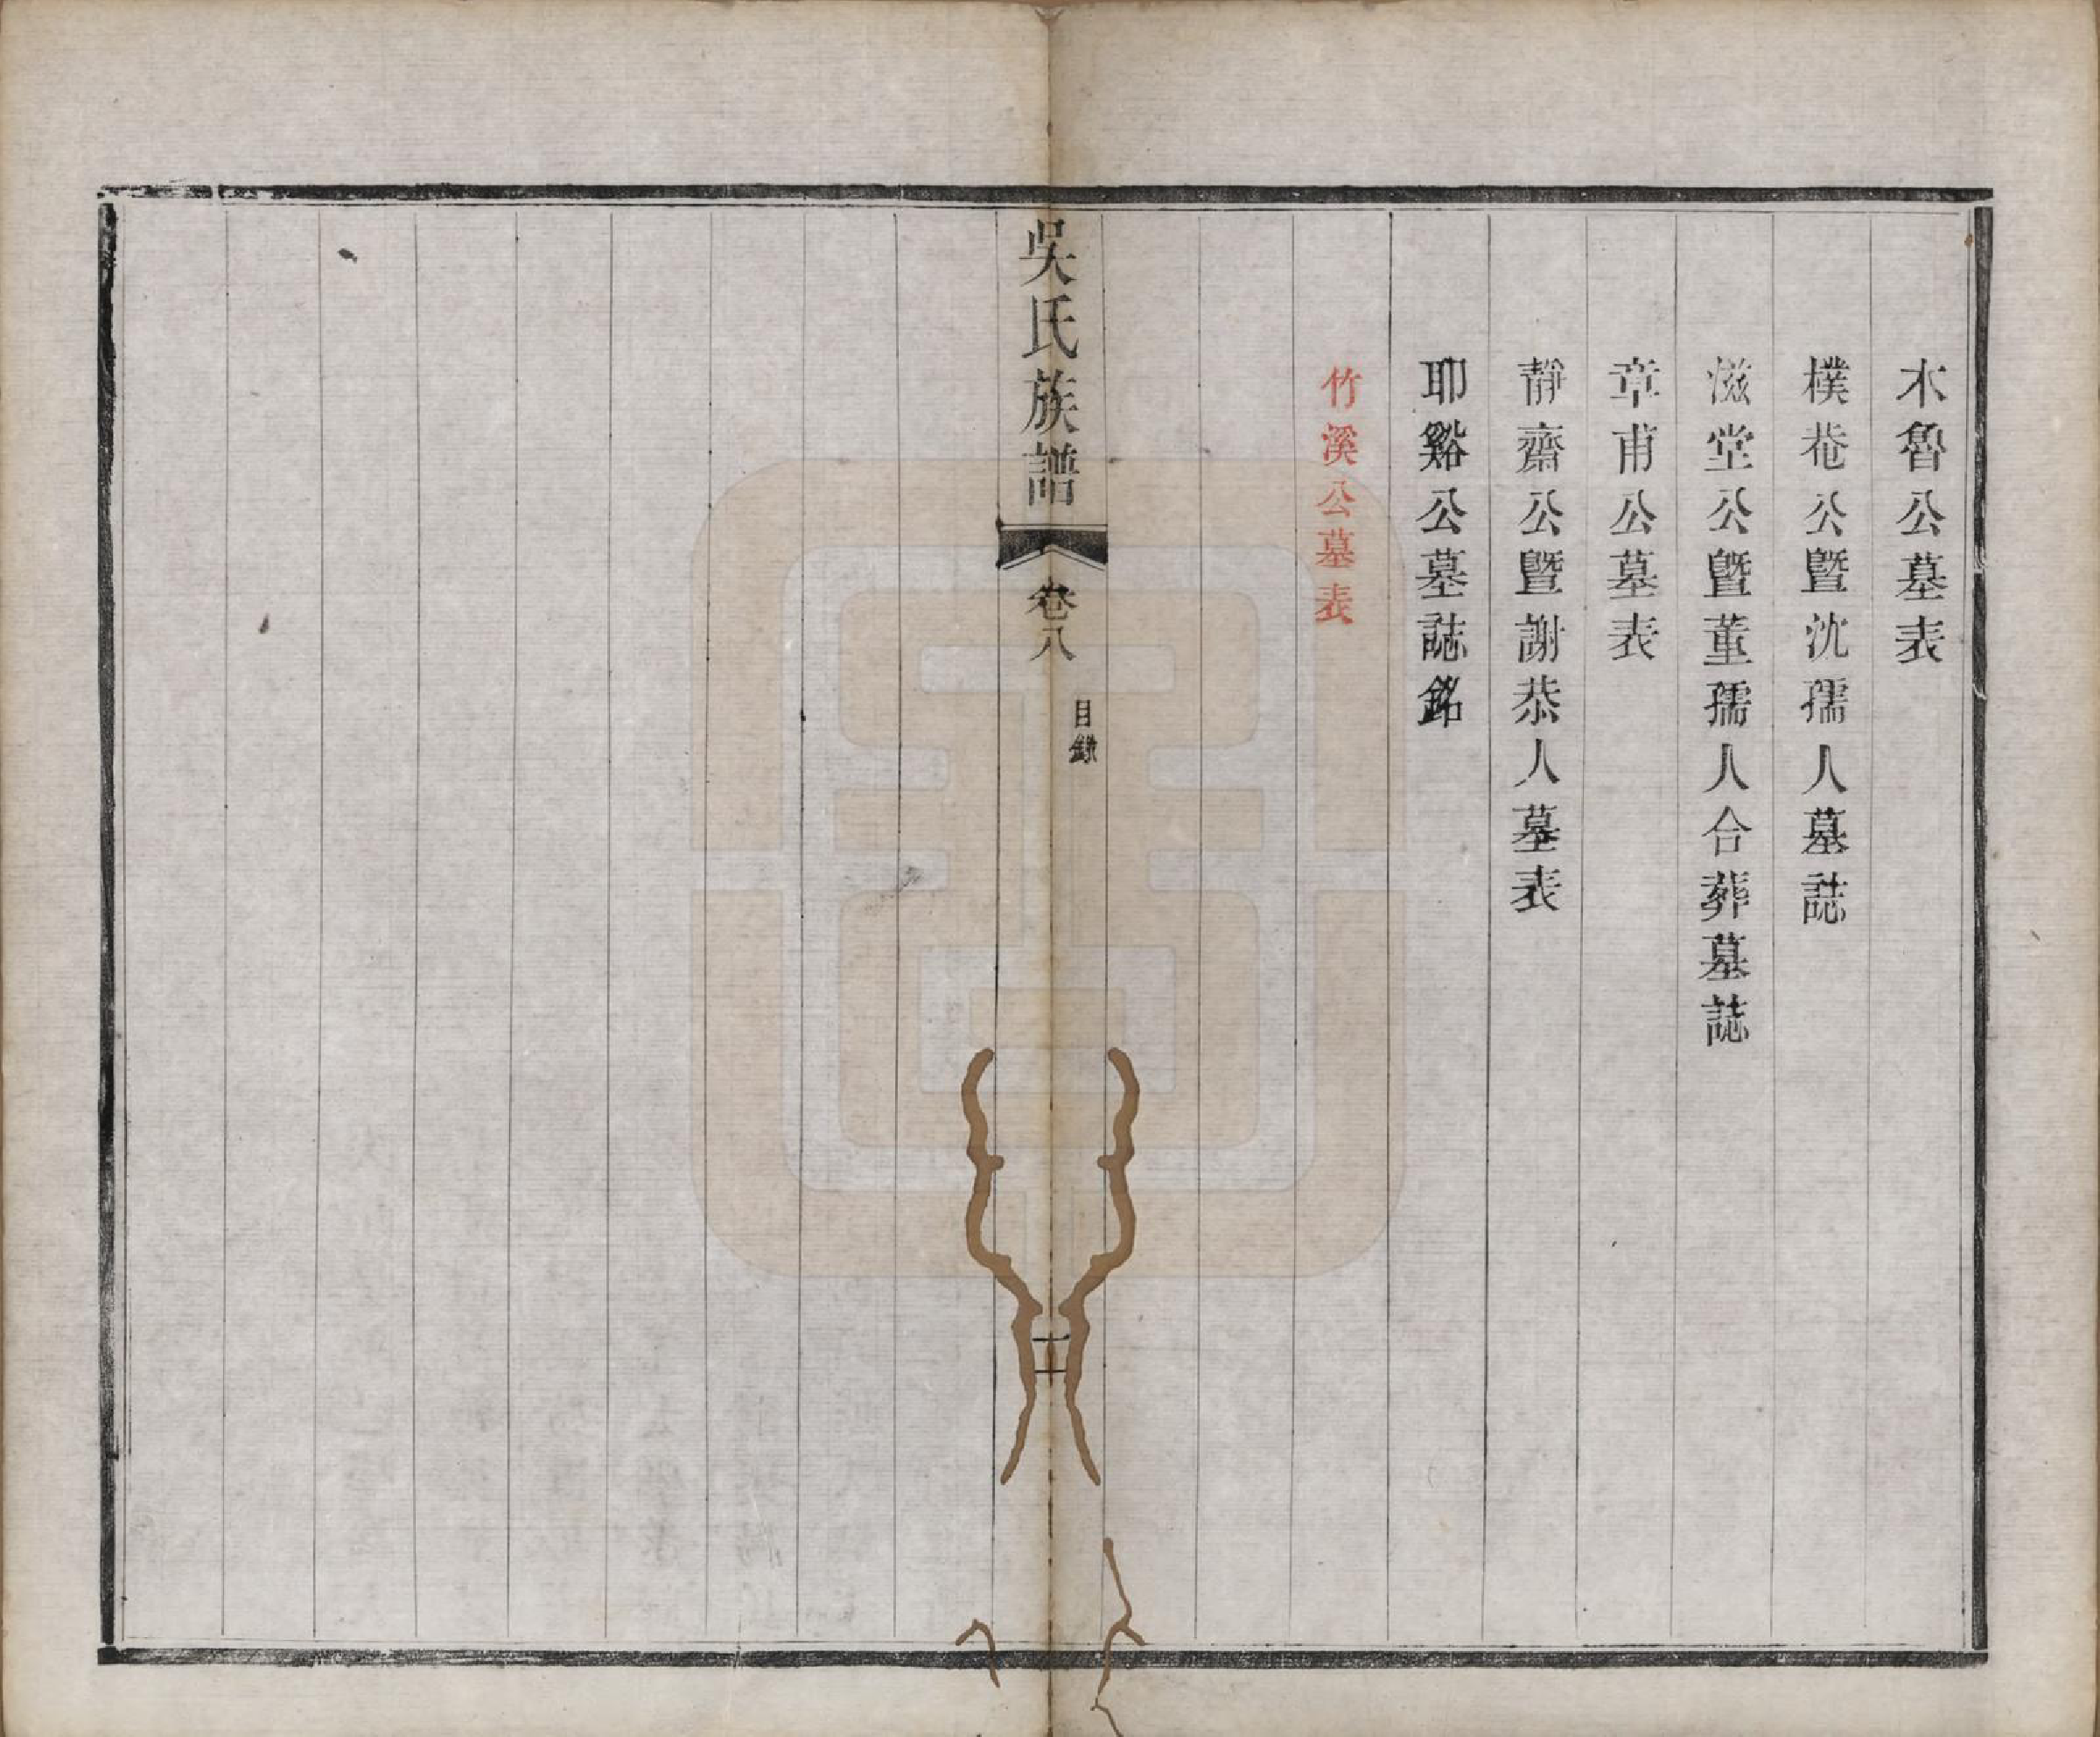 木魯公墓表
樸菴公曁沈孺人墓誌
滋堂公曁董孺人合葬墓誌
章甫公墓表
靜齋公曁謝恭人墓表
耶谿公墓誌銘
竹溪公墓表
吳氏族譜
卷八
目錄